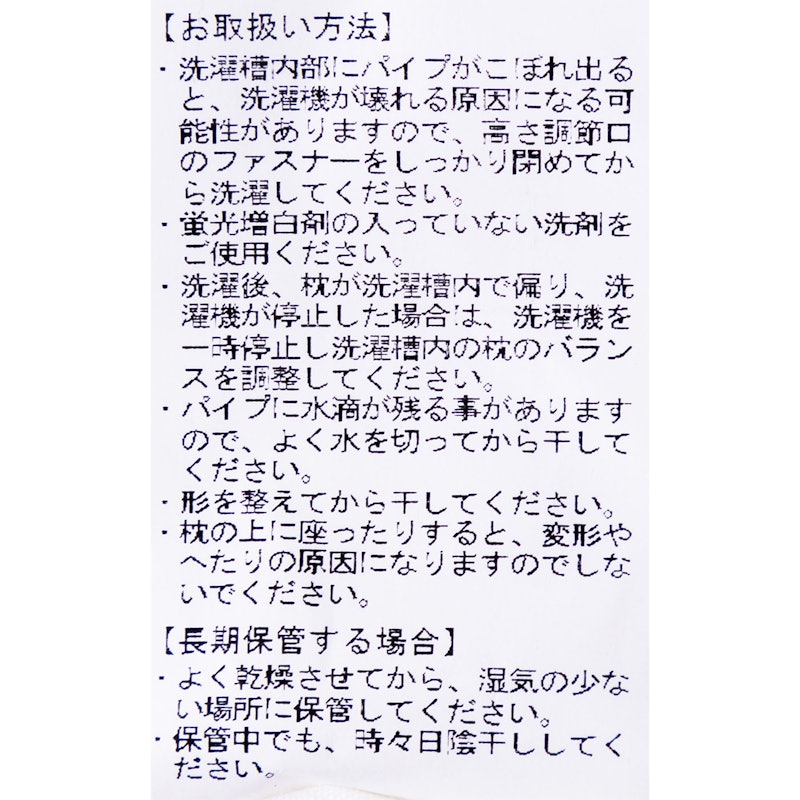 【お取扱い方法】
・洗濯槽内部にパイプがこぼれ出る
と、洗濯機が壊れる原因になる可
能性がありますので、高さ調節口
のファスナーをしっかり閉めてか
ら洗濯してください。
・蛍光増白剤の入っていない洗剤を
ご使用ください。
・洗濯後、枕が洗濯槽内で偏り、洗
濯機が停止した場合は、洗濯機を
一時停止し洗濯槽内の枕のバラン
スを調整してください。
・パイプに水滴が残る事があります
ので、よく水を切ってから干して
ください。
・形を整えてから干してください。
・枕の上に座ったりすると、変形や
へたりの原因になりますのでしな
いでください。
【長期保管する場合】
・よく乾燥させてから、湿気の少な
い場所に保管してください。
・保管中でも、時々日陰干ししてく
ださい。